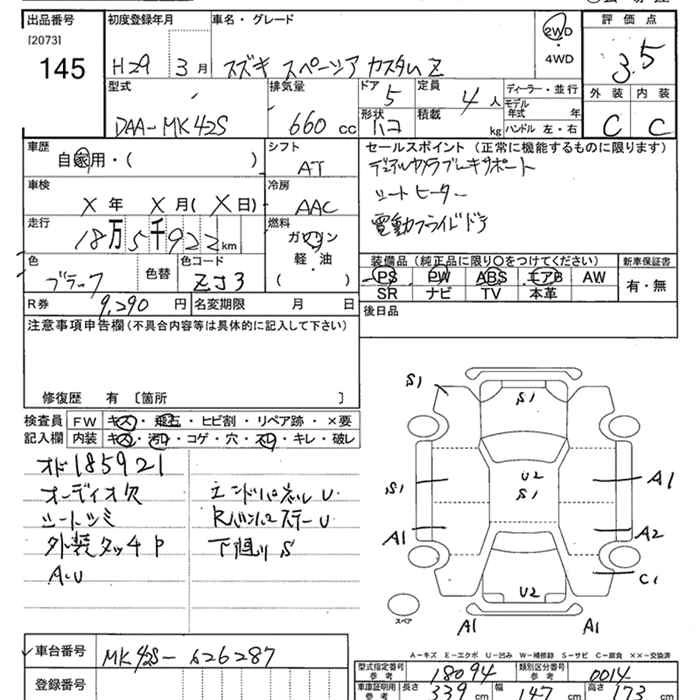 出品番号
[2073]
145
初度登録年月
車名・グレード
H29 3月 スズキ スペーシア カスタムZ
2WD
・
4WD
評価点
3.5
外装 内装
C C
型式
DAA-MK42S
排気量
660 cc
ドア 5
定員 4人
形状 ハコ
積載 kg
ディーラー・並行
モデル年式 年
ハンドル 左・右
車歴
自家用・( )
シフト
AT
車検
X年 X月(X日)
冷房
AAC
走行
18万5千922km
燃料
ガソリン
軽・油
( )
色
ブラック
色替
色コード
ZJ3
R券 9,290円
名変期限 月 日
セールスポイント(正常に機能するものに限ります)
デュアルカメラブレーキサポート
シートヒーター
電動スライドドア
装備品(純正品に限り○をつけてください)
新車保証書
PS PW ABS エアB AW
SR ナビ TV 本革
有・無
後日品
注意事項申告欄(不具合内容等は具体的に記入して下さい)
修復歴 有 [箇所 ]
検査員記入欄
FW キズ・飛石・ヒビ割・リペア跡・×要
内装 キズ・汚れ・コゲ・穴・スレ・キレ・破レ
オド185921
オーディオ欠
シートシミ
外装タッチP
A・U
エンドパネルU
RバンパーステーU
下廻りS
S1
S1
U2
S1
S1
A1
A1
A2
C1
U2
スペア
A1
A1
A-キズ E-エクボ U-凹み W-補修跡 S-サビ C-腐食 ××-交換済
車台番号
MK42S-626287
登録番号
型式指定番号 参考 18094
類別区分番号 参考 0014
車庫証明用 参考 長さ 339cm 幅 147cm 高さ 173cm